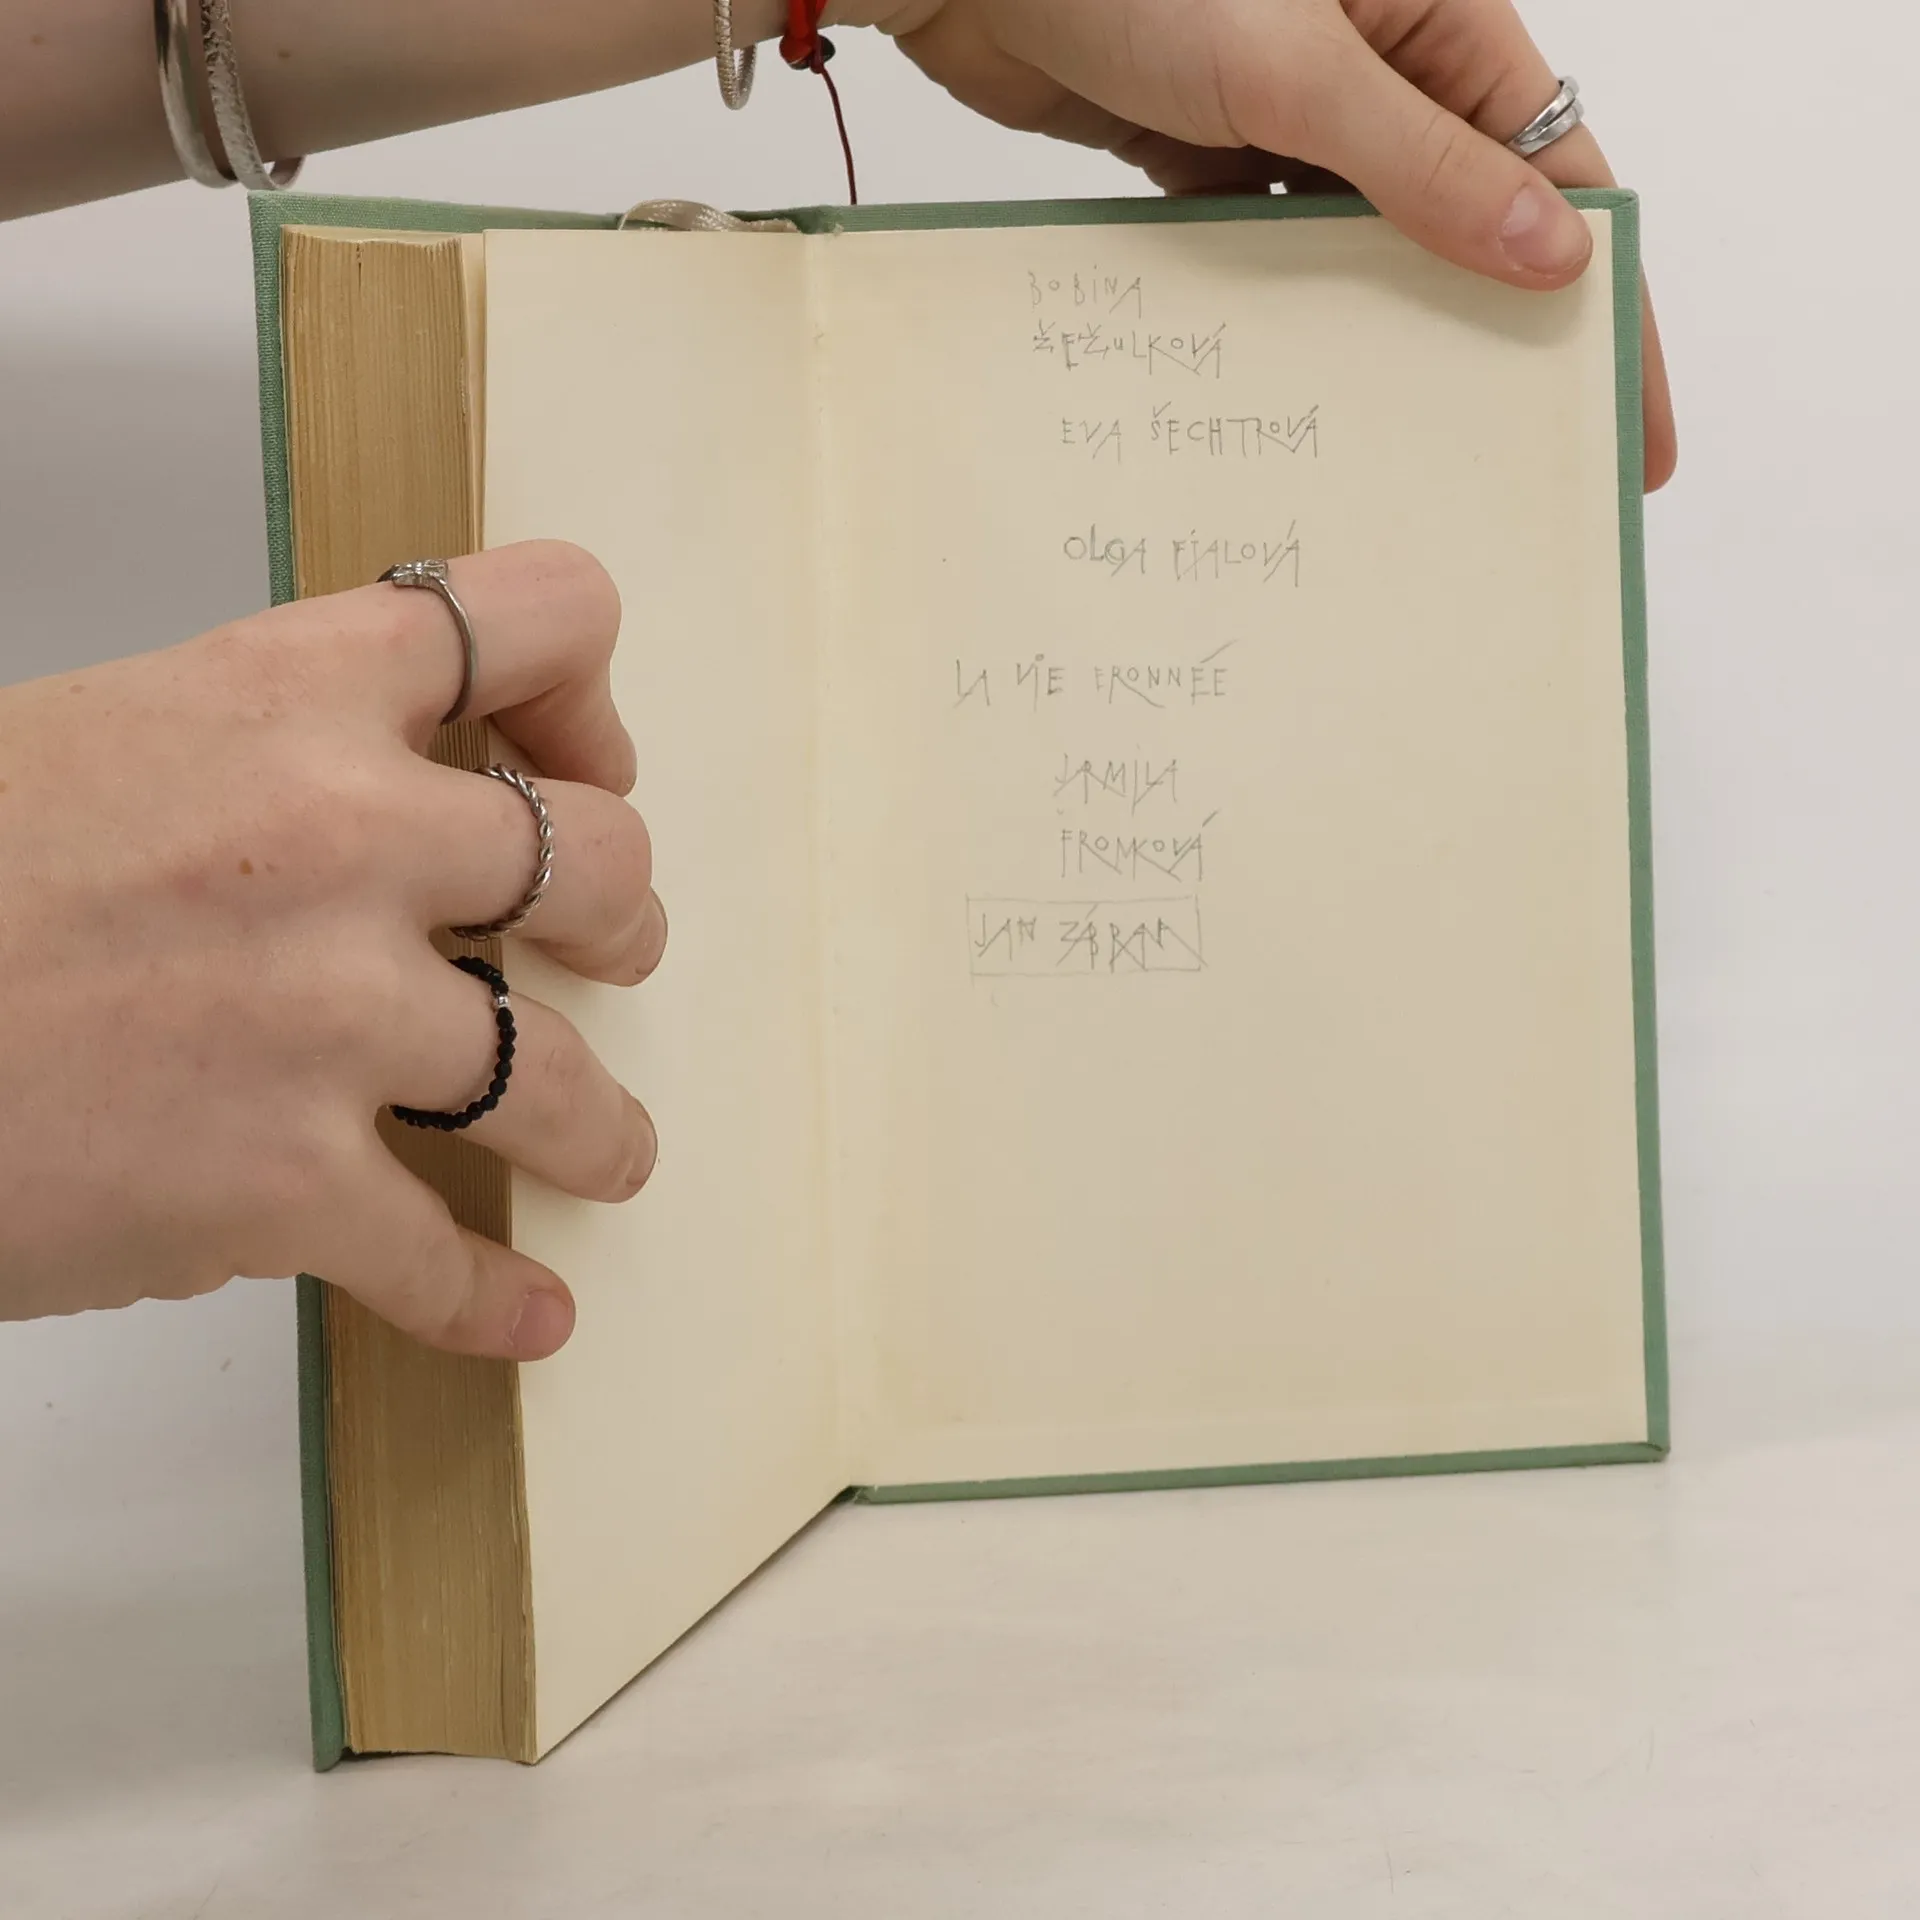 BOBINA
ŽEŽULKOVÁ
EVA ŠECHTROVÁ
OLGA FIALOVÁ
LA VIE ERONNÉE
JARMILA
FROMKOVÁ
JAN ZÁBRANA